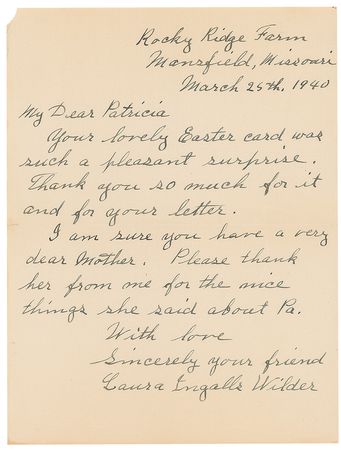 Rocky Ridge Farm
Mansfield, Missouri
March 25th, 1940
My Dear Patricia
Your lovely Easter card was
such a pleasant surprise.
Thank you so much for it
and for your letter.
I am sure you have a very
dear Mother. Please thank
her from me for the nice
things she said about Pa.
With love
Sincerely your friend
Laura Ingalls Wilder